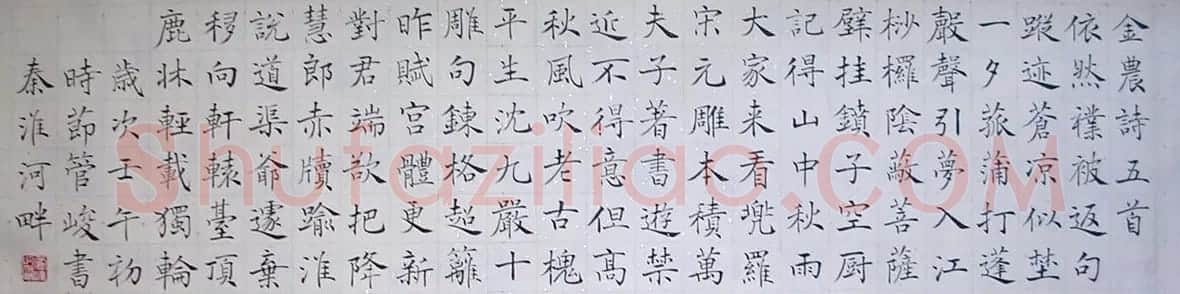 金農詩五首
依然襆被返句
蹤迹蒼凉似埜
一夕菰蒲打蓬
聲引夢入江
杪欏陰蔽菩薩
壁挂鎖子空厨
記得山中秋雨
大家来看兜羅
宋元雕本積萬
夫子著書遊禁
近不得意但高
秋風吹老古槐
平生沈九嚴十
雕句鍊格超籬
昨賦宮體更新
對君端欲把降
慧郎赤牘踰淮
說道渠爺遽棄
移向軒轅臺頂
鹿牀輕載獨輪
歲次壬午初
時節管峻書
秦淮河畔
Shufaziliao.COM